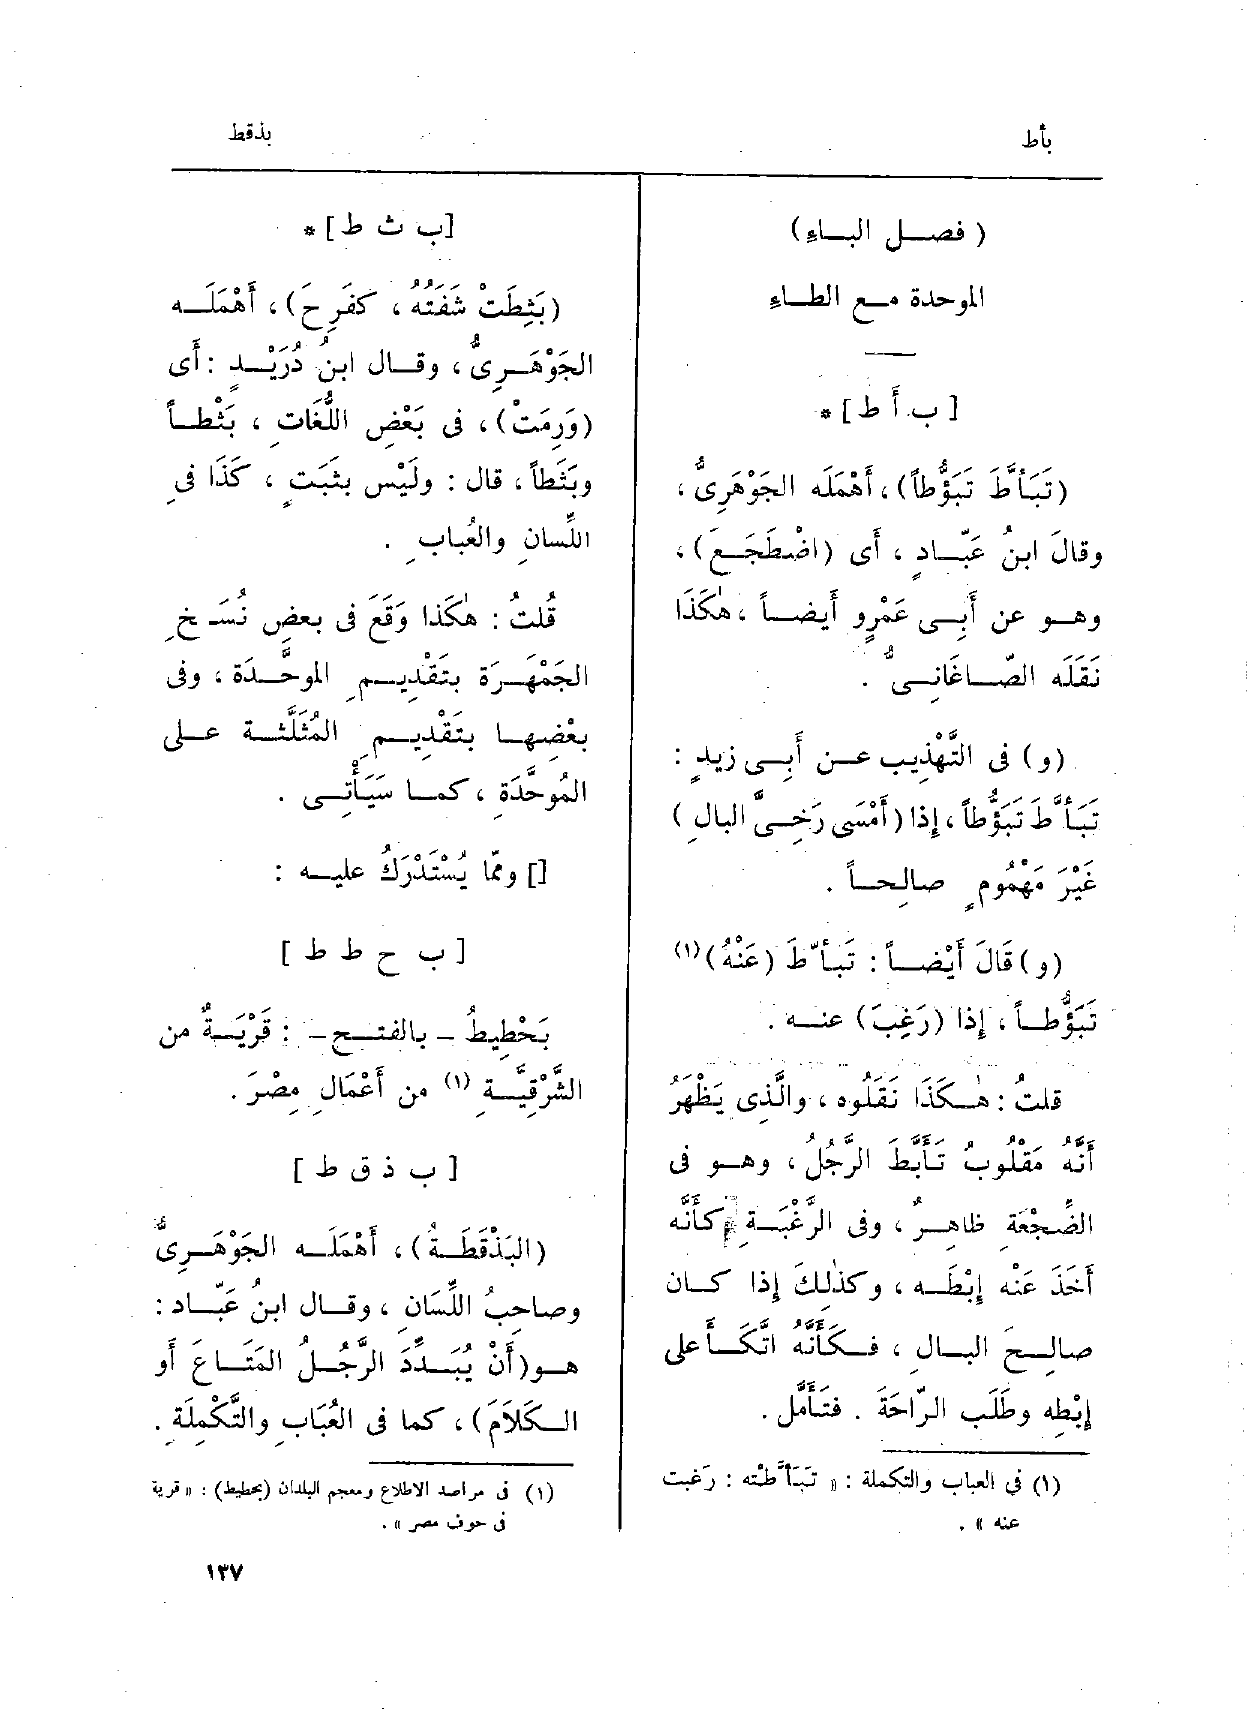 بأط
بذقط
( فصـل البـاء )
الموحدة مـع الطـاء
[ ب أ ط ] *
(تَبَأَّطَ تَبَؤُّطاً) ، أَهْمَلَه الجَوْهَرِىُّ ،
وقالَ ابنُ عَبّـادٍ ، أَى (اضْطَجَـعَ) ،
وهـو عن أَبِـى عَمْرٍو أَيضـاً ، هٰكَذَا
نَقَلَه الصّـاغَانِـىُّ .
(و) فى التَّهْذِيب عـن أَبِـى زيدٍ :
تَبَأَّطَ تَبَؤُّطاً ، إِذا (أَمْسَى رَخِـىَّ البالِ )
غَيْرَ مَهْمُومٍ صالِحـاً .
(و) قَالَ أَيْضـاً : تَبَأّطَ (عَنْهُ) (١)
تَبَؤُّطـاً ، إِذا (رَغِبَ) عنـه .
قلتُ : هٰـكَذَا نَقَلُوه ، والَّذِى يَظْهَرُ
أَنَّهُ مَقْلُوبُ تَأَبَّطَ الرَّجُلُ ، وهـو فى
الضِّجْعَةِ ظاهِـرٌ ، وفى الرَّغْبَـةِ كأَنَّه
أَخَذَ عَنْه إِبْطَـه ، وكَذٰلِكَ إِذا كـان
صالِـحَ البـالِ ، فـكَأَنَّهُ اتَّكَـأَ على
إِبْطِه وطَلَب الرّاحَةَ . فتَأَمَّل .
(١) فى العباب والتكملة : « تَبَأَّطْتُه : رَغبت
عنه » .
[ب ث ط] *
(بَثِطَتْ شَفَتُهُ ، كفَرِحَ) ، أَهْمَلَـه
الجَوْهَـرِىُّ ، وقـال ابنُ دُرَيْـدٍ : أَى
(وَرِمَتْ) ، فى بَعْضِ اللُّغَاتِ ، بَثْطـاً
وبَثَطاً ، قال : ولَيْس بثَبَتٍ ، كَذَا فى
اللِّسانِ والعُبابِ .
قُلتُ : هٰكَذا وَقَعَ فى بعضِ نُسَـخِ
الجَمْهَـرَة بتَقْدِيـمِ الموحَّـدَة ، وفى
بعْضِهـا بتَقْدِيـمِ المُثَلَّثـة عـلى
المُوحَّدَةِ ، كمـا سَيَأْتِـى .
[] وممّا يُسْتَدْرَكُ عليـه :
[ ب ح ط ط ]
بَحْطِيطُ - بالفتـح - : قَرْيَـةٌ من
الشَّرْقِيَّـةِ (١) من أَعْمَالِ مِصْرَ .
[ ب ذ ق ط ]
(البَذْقَطَـةُ) ، أَهْمَلَـه الجَوْهَـرِىُّ
وصاحِبُ اللِّسَانِ ، وقـال ابنُ عَبّـاد :
هـو (أَنْ يُبَـدِّدَ الرَّجُـلُ المَتَـاعَ أَو
الـكَلَامَ) ، كما فى العُبَابِ والتَّكْمِلَةِ .
(١) فى مراصد الاطلاع ومعجم البلدان (بحطيط) : « قرية
فى حوف مصر » .
١٣٧